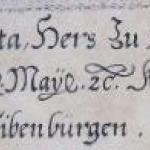 ta, Hers Zu
Maÿe. ꝛc.
ibenbürgen.